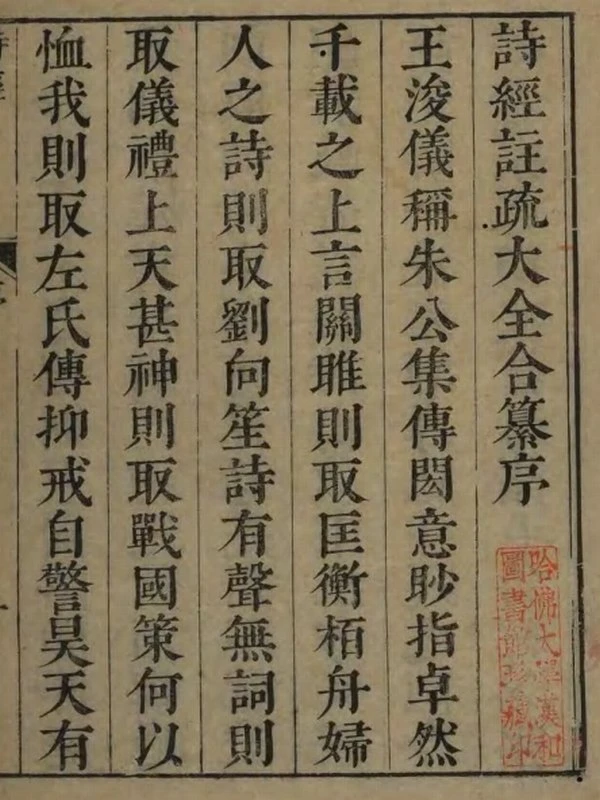 詩經註疏大全合纂序
王浚儀稱朱公集傳閎意眇指卓然
千載之上言關雎則取匡衡栢舟婦
人之詩則取劉向笙詩有聲無詞則
取儀禮上天甚神則取戰國策何以
恤我則取左氏傳抑戒自警昊天有
哈佛大學漢和
圖書館珍藏印